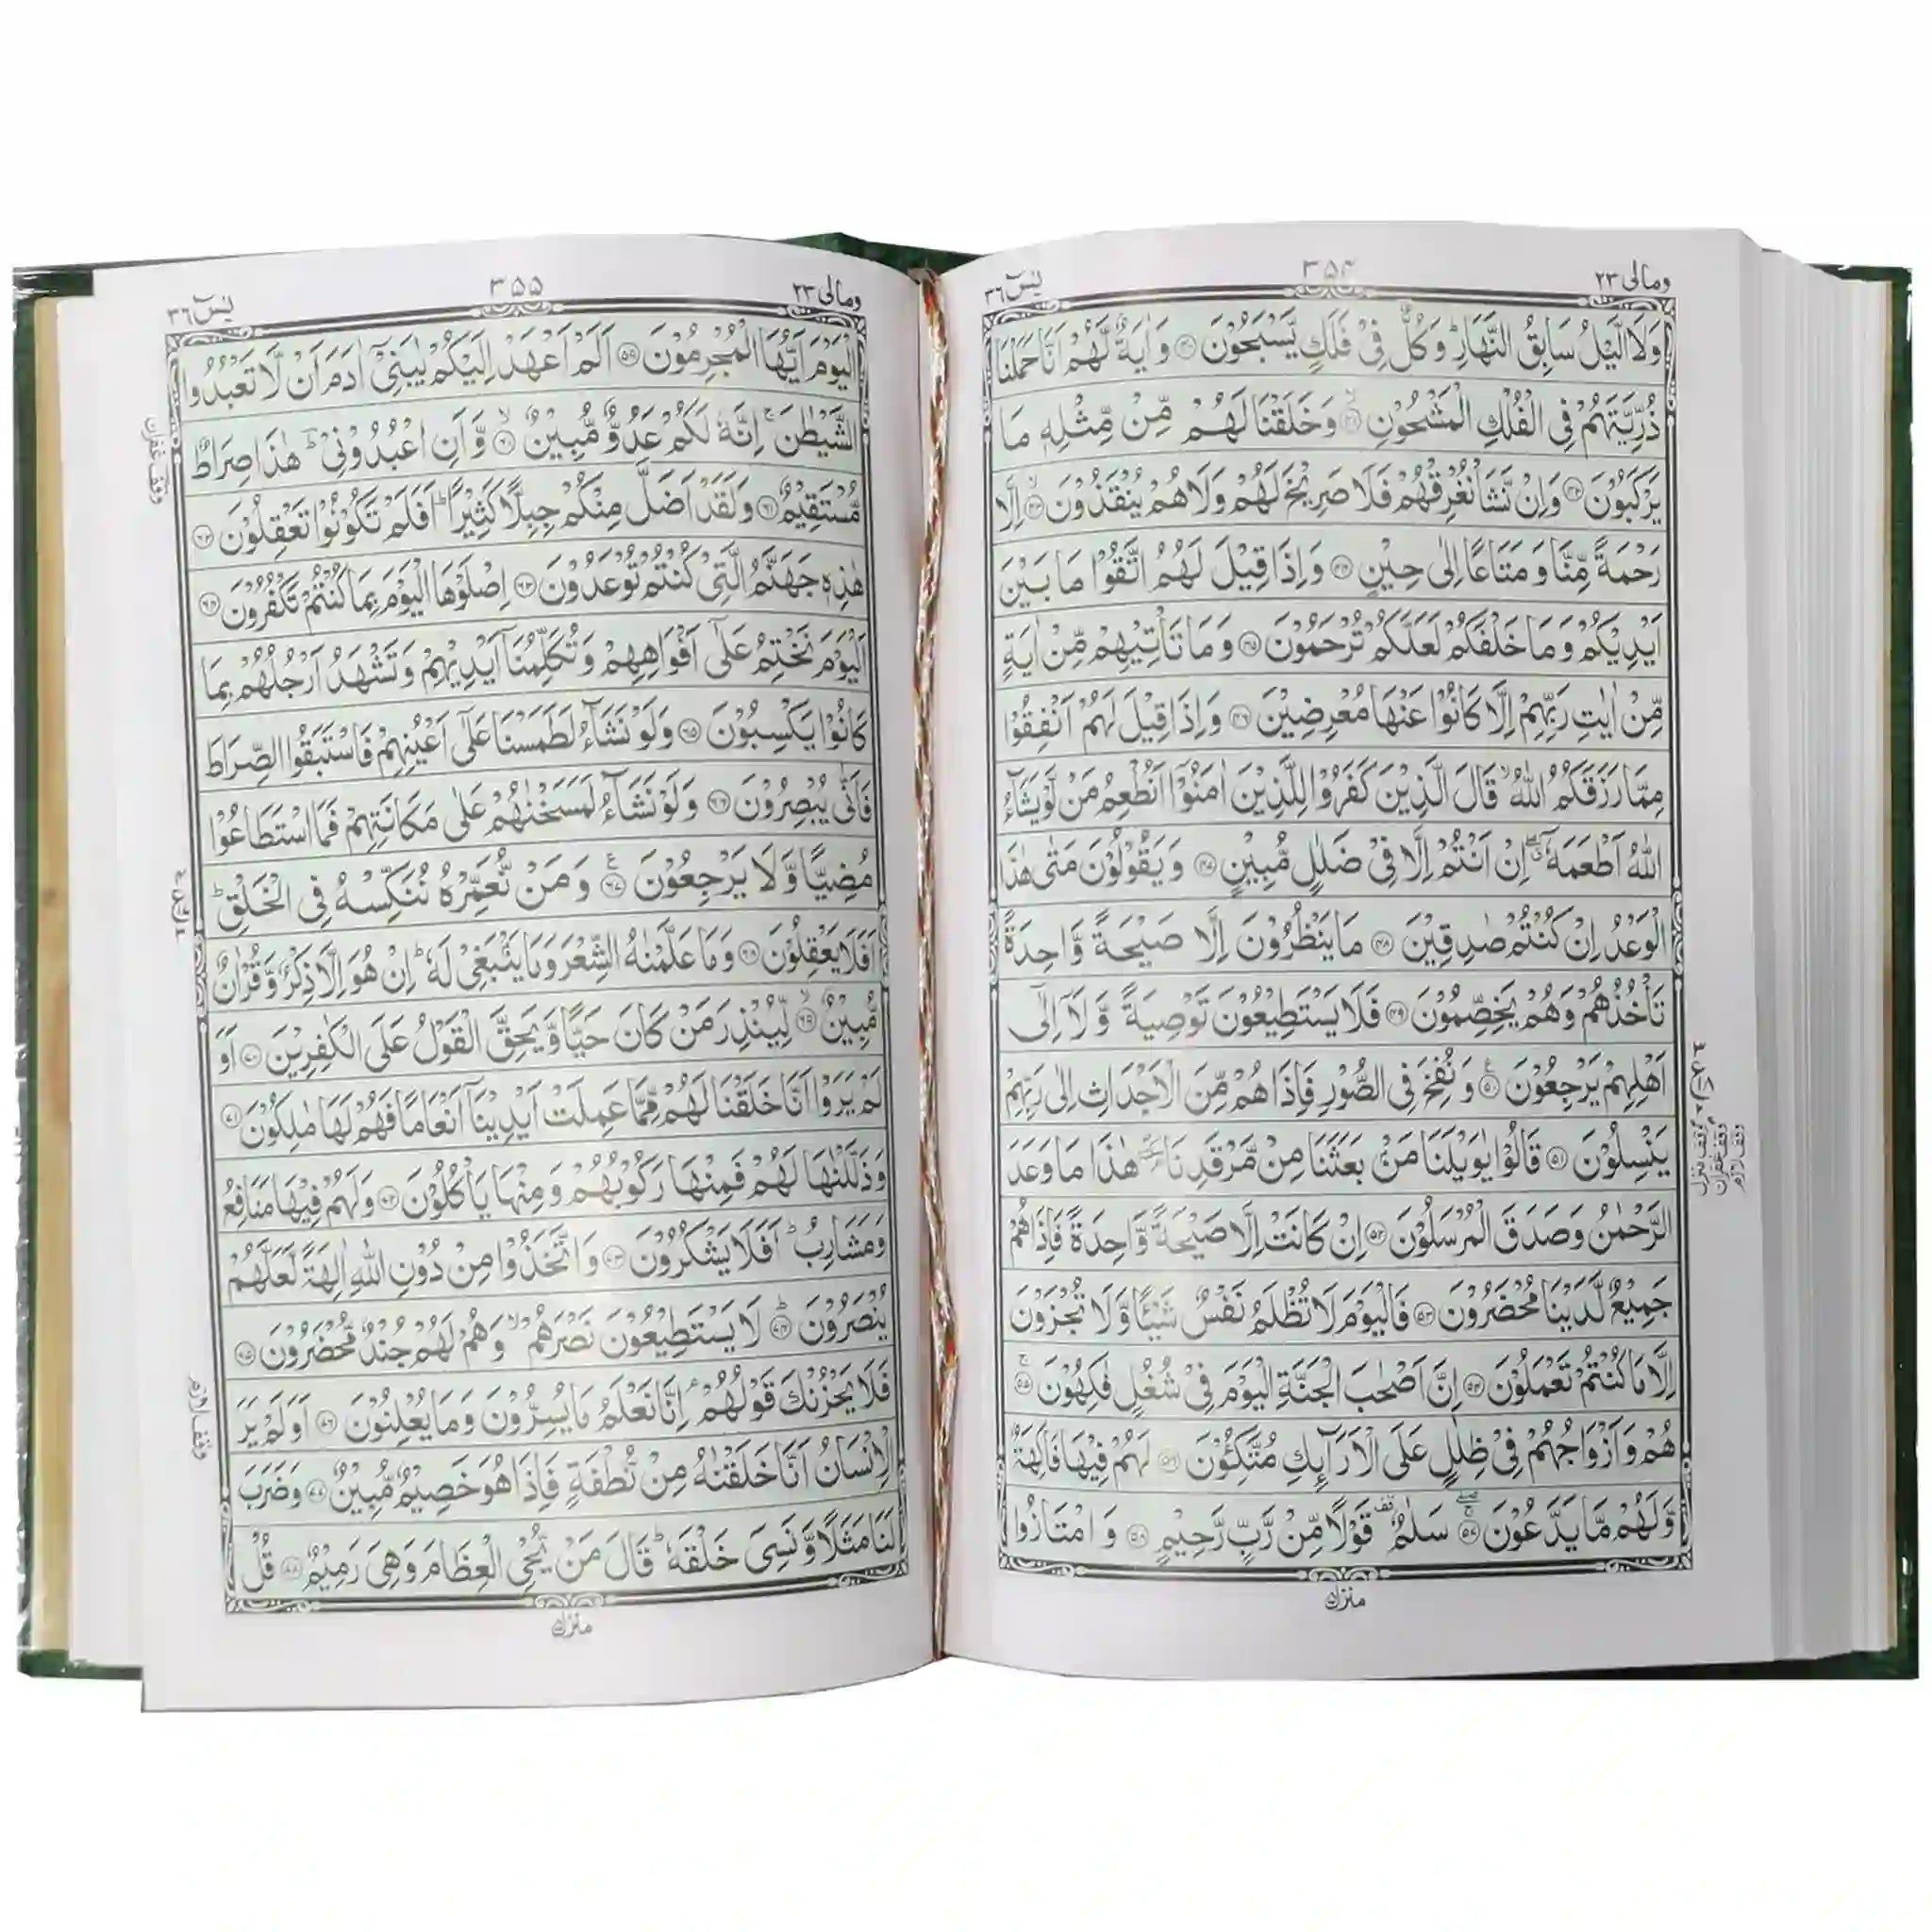 ومالی ٢٣
٣٥٤
يٰسٓ ٣٦
وَلَا الَّيْلُ سَابِقُ النَّهَارِ ؕ وَكُلٌّ فِيْ فَلَكٍ يَّسْبَحُوْنَ ۝٤٠ وَاٰيَةٌ لَّهُمْ اَنَّا حَمَلْنَا
ذُرِّيَّتَهُمْ فِي الْفُلْكِ الْمَشْحُوْنِ ۝٤١ وَخَلَقْنَا لَهُمْ مِّنْ مِّثْلِهٖ مَا
يَرْكَبُوْنَ ۝٤٢ وَاِنْ نَّشَاْ نُغْرِقْهُمْ فَلَا صَرِيْخَ لَهُمْ وَلَا هُمْ يُنْقَذُوْنَ ۝٤٣ اِلَّا
رَحْمَةً مِّنَّا وَ مَتَاعًا اِلٰى حِيْنٍ ۝٤٤ وَاِذَا قِيْلَ لَهُمُ اتَّقُوْا مَا بَيْنَ
اَيْدِيْكُمْ وَمَا خَلْفَكُمْ لَعَلَّكُمْ تُرْحَمُوْنَ ۝٤٥ وَمَا تَاْتِيْهِمْ مِّنْ اٰيَةٍ
مِّنْ اٰيٰتِ رَبِّهِمْ اِلَّا كَانُوْا عَنْهَا مُعْرِضِيْنَ ۝٤٦ وَاِذَا قِيْلَ لَهُمْ اَنْفِقُوْا
مِمَّا رَزَقَكُمُ اللّٰهُ ۙ قَالَ الَّذِيْنَ كَفَرُوْا لِلَّذِيْنَ اٰمَنُوْۤا اَنُطْعِمُ مَنْ لَّوْ يَشَآءُ
اللّٰهُ اَطْعَمَهٗۤ ۖ اِنْ اَنْتُمْ اِلَّا فِيْ ضَلٰلٍ مُّبِيْنٍ ۝٤٧ وَيَقُوْلُوْنَ مَتٰى هٰذَا
الْوَعْدُ اِنْ كُنْتُمْ صٰدِقِيْنَ ۝٤٨ مَا يَنْظُرُوْنَ اِلَّا صَيْحَةً وَّاحِدَةً
تَاْخُذُهُمْ وَهُمْ يَخِصِّمُوْنَ ۝٤٩ فَلَا يَسْتَطِيْعُوْنَ تَوْصِيَةً وَّلَاۤ اِلٰۤى
اَهْلِهِمْ يَرْجِعُوْنَ ۝٥٠ وَنُفِخَ فِي الصُّوْرِ فَاِذَا هُمْ مِّنَ الْاَجْدَاثِ اِلٰى رَبِّهِمْ
يَنْسِلُوْنَ ۝٥١ قَالُوْا يٰوَيْلَنَا مَنْۢ بَعَثَنَا مِنْ مَّرْقَدِنَا ۘ هٰذَا مَا وَعَدَ
الرَّحْمٰنُ وَصَدَقَ الْمُرْسَلُوْنَ ۝٥٢ اِنْ كَانَتْ اِلَّا صَيْحَةً وَّاحِدَةً فَاِذَا هُمْ
جَمِيْعٌ لَّدَيْنَا مُحْضَرُوْنَ ۝٥٣ فَالْيَوْمَ لَا تُظْلَمُ نَفْسٌ شَيْـًٔا وَّلَا تُجْزَوْنَ
اِلَّا مَا كُنْتُمْ تَعْمَلُوْنَ ۝٥٤ اِنَّ اَصْحٰبَ الْجَنَّةِ الْيَوْمَ فِيْ شُغُلٍ فٰكِهُوْنَ ۝٥٥
هُمْ وَاَزْوَاجُهُمْ فِيْ ظِلٰلٍ عَلَى الْاَرَآئِكِ مُتَّكِـُٔوْنَ ۝٥٦ لَهُمْ فِيْهَا فَاكِهَةٌ
وَّلَهُمْ مَّا يَدَّعُوْنَ ۝٥٧ سَلٰمٌ ۫ قَوْلًا مِّنْ رَّبٍّ رَّحِيْمٍ ۝٥٨ وَامْتَازُوا
منزل ٥
وقف لازم
وقف غفران
وقف منزل
ومالی ٢٣
٣٥٥
يٰسٓ ٣٦
الْيَوْمَ اَيُّهَا الْمُجْرِمُوْنَ ۝٥٩ اَلَمْ اَعْهَدْ اِلَيْكُمْ يٰبَنِيْۤ اٰدَمَ اَنْ لَّا تَعْبُدُوا
الشَّيْطٰنَ ۚ اِنَّهٗ لَكُمْ عَدُوٌّ مُّبِيْنٌ ۝٦٠ وَّاَنِ اعْبُدُوْنِيْ ؕ هٰذَا صِرَاطٌ
مُّسْتَقِيْمٌ ۝٦١ وَلَقَدْ اَضَلَّ مِنْكُمْ جِبِلًّا كَثِيْرًا ؕ اَفَلَمْ تَكُوْنُوْا تَعْقِلُوْنَ ۝٦٢
هٰذِهٖ جَهَنَّمُ الَّتِيْ كُنْتُمْ تُوْعَدُوْنَ ۝٦٣ اِصْلَوْهَا الْيَوْمَ بِمَا كُنْتُمْ تَكْفُرُوْنَ ۝٦٤
اَلْيَوْمَ نَخْتِمُ عَلٰۤى اَفْوَاهِهِمْ وَتُكَلِّمُنَاۤ اَيْدِيْهِمْ وَتَشْهَدُ اَرْجُلُهُمْ بِمَا
كَانُوْا يَكْسِبُوْنَ ۝٦٥ وَلَوْ نَشَآءُ لَطَمَسْنَا عَلٰۤى اَعْيُنِهِمْ فَاسْتَبَقُوا الصِّرَاطَ
فَاَنّٰى يُبْصِرُوْنَ ۝٦٦ وَلَوْ نَشَآءُ لَمَسَخْنٰهُمْ عَلٰى مَكَانَتِهِمْ فَمَا اسْتَطَاعُوْا
مُضِيًّا وَّلَا يَرْجِعُوْنَ ۝٦٧ وَمَنْ نُّعَمِّرْهُ نُنَكِّسْهُ فِي الْخَلْقِ ؕ
اَفَلَا يَعْقِلُوْنَ ۝٦٨ وَمَا عَلَّمْنٰهُ الشِّعْرَ وَمَا يَنْۢبَغِيْ لَهٗ ؕ اِنْ هُوَ اِلَّا ذِكْرٌ وَّقُرْاٰنٌ
مُّبِيْنٌ ۝٦٩ لِّيُنْذِرَ مَنْ كَانَ حَيًّا وَّيَحِقَّ الْقَوْلُ عَلَى الْكٰفِرِيْنَ ۝٧٠ اَوَ
لَمْ يَرَوْا اَنَّا خَلَقْنَا لَهُمْ مِّمَّا عَمِلَتْ اَيْدِيْنَاۤ اَنْعَامًا فَهُمْ لَهَا مٰلِكُوْنَ ۝٧١
وَذَلَّلْنٰهَا لَهُمْ فَمِنْهَا رَكُوْبُهُمْ وَمِنْهَا يَاْكُلُوْنَ ۝٧٢ وَلَهُمْ فِيْهَا مَنَافِعُ
وَمَشَارِبُ ؕ اَفَلَا يَشْكُرُوْنَ ۝٧٣ وَاتَّخَذُوْا مِنْ دُوْنِ اللّٰهِ اٰلِهَةً لَّعَلَّهُمْ
يُنْصَرُوْنَ ۝٧٤ لَا يَسْتَطِيْعُوْنَ نَصْرَهُمْ ۙ وَهُمْ لَهُمْ جُنْدٌ مُّحْضَرُوْنَ ۝٧٥
فَلَا يَحْزُنْكَ قَوْلُهُمْ ۘ اِنَّا نَعْلَمُ مَا يُسِرُّوْنَ وَمَا يُعْلِنُوْنَ ۝٧٦ اَوَلَمْ يَرَ
الْاِنْسَانُ اَنَّا خَلَقْنٰهُ مِنْ نُّطْفَةٍ فَاِذَا هُوَ خَصِيْمٌ مُّبِيْنٌ ۝٧٧ وَضَرَبَ
لَنَا مَثَلًا وَّنَسِيَ خَلْقَهٗ ؕ قَالَ مَنْ يُّحْيِ الْعِظَامَ وَهِيَ رَمِيْمٌ ۝٧٨ قُلْ
منزل ٥
وقف غفران
وقف لازم